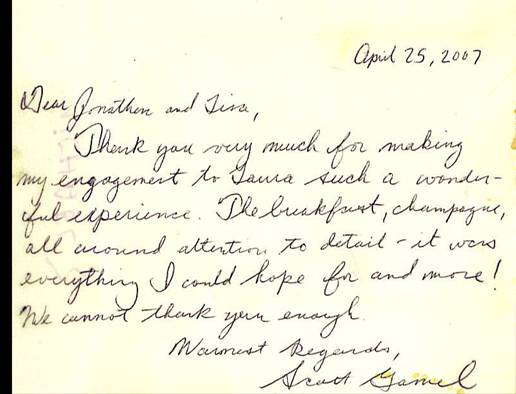 April 25, 2007
Dear Jonathan and Lisa,
Thank you very much for making
my engagement to Laura such a wonder-
ful experience. The breakfast, champagne,
all around attention to detail - it was
everything I could hope for and more!
We cannot thank you enough.
Warmest Regards,
Scott